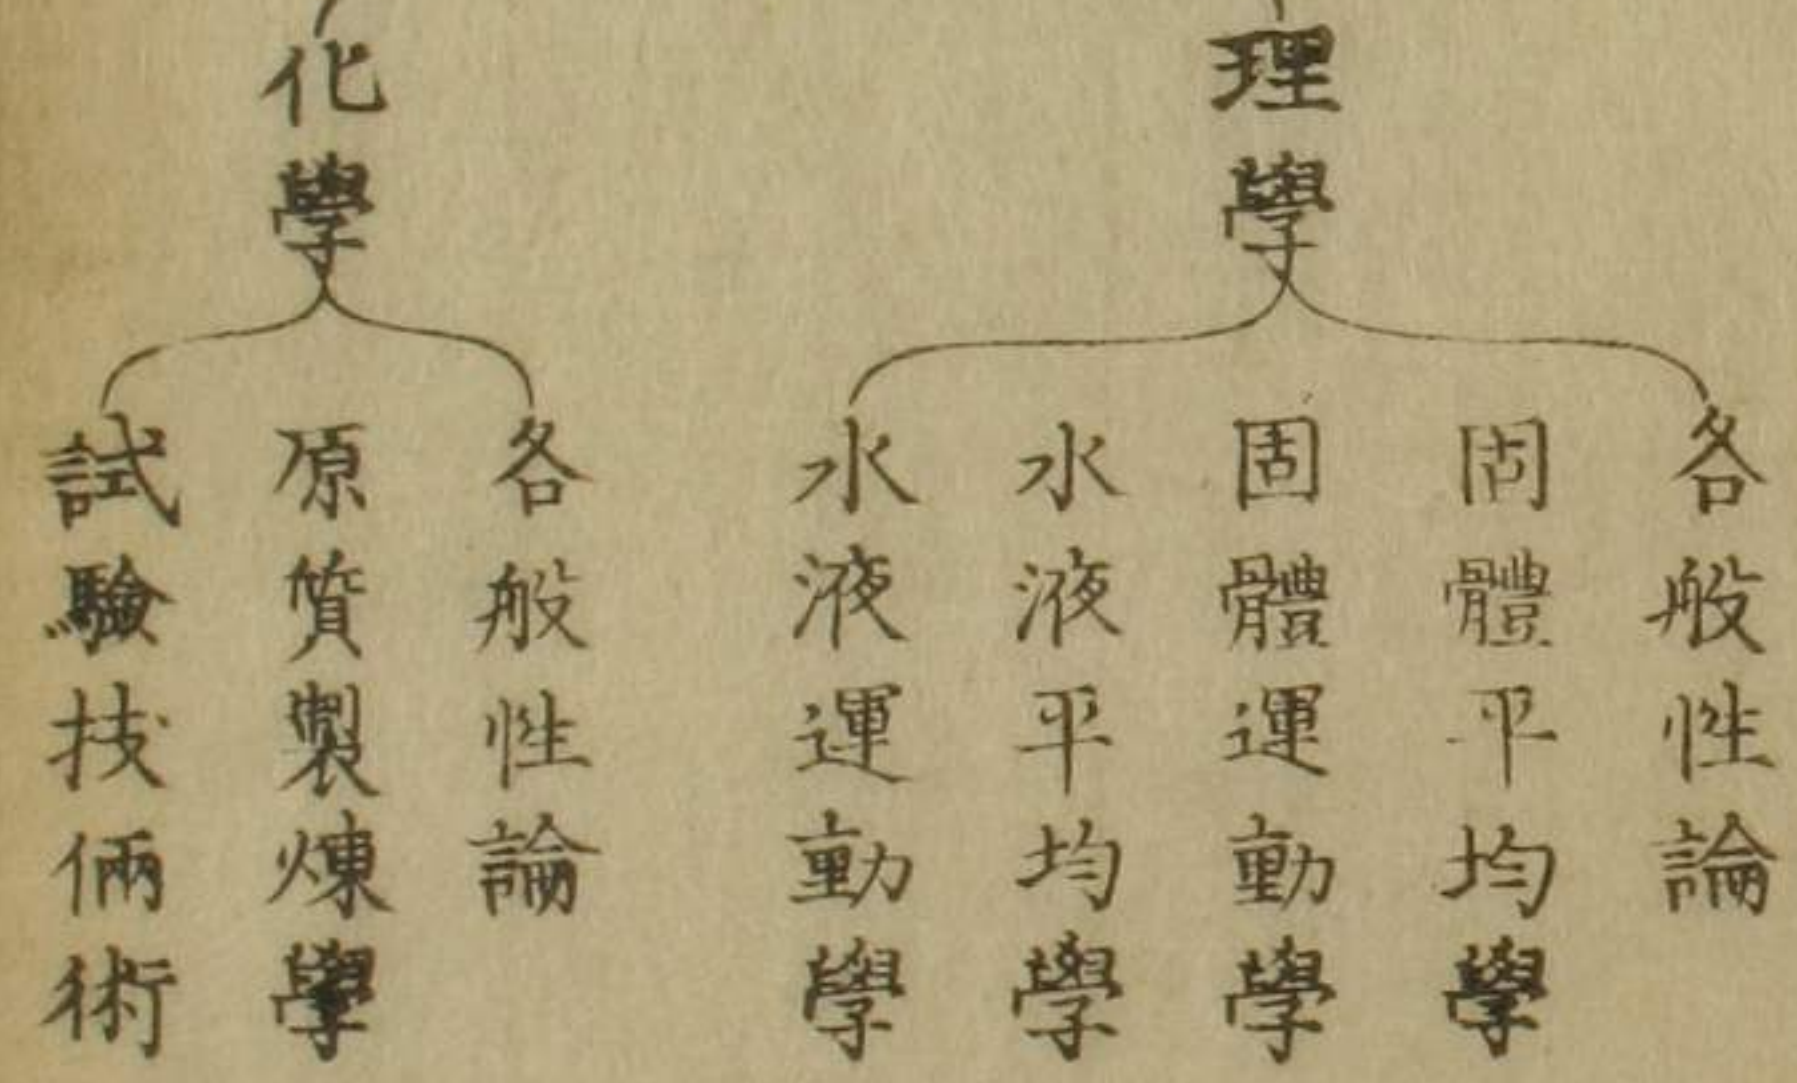 理學
各般性論
固體平均學
固體運動學
水液平均學
水液運動學
化學
各般性論
原質製煉學
試驗技倆術